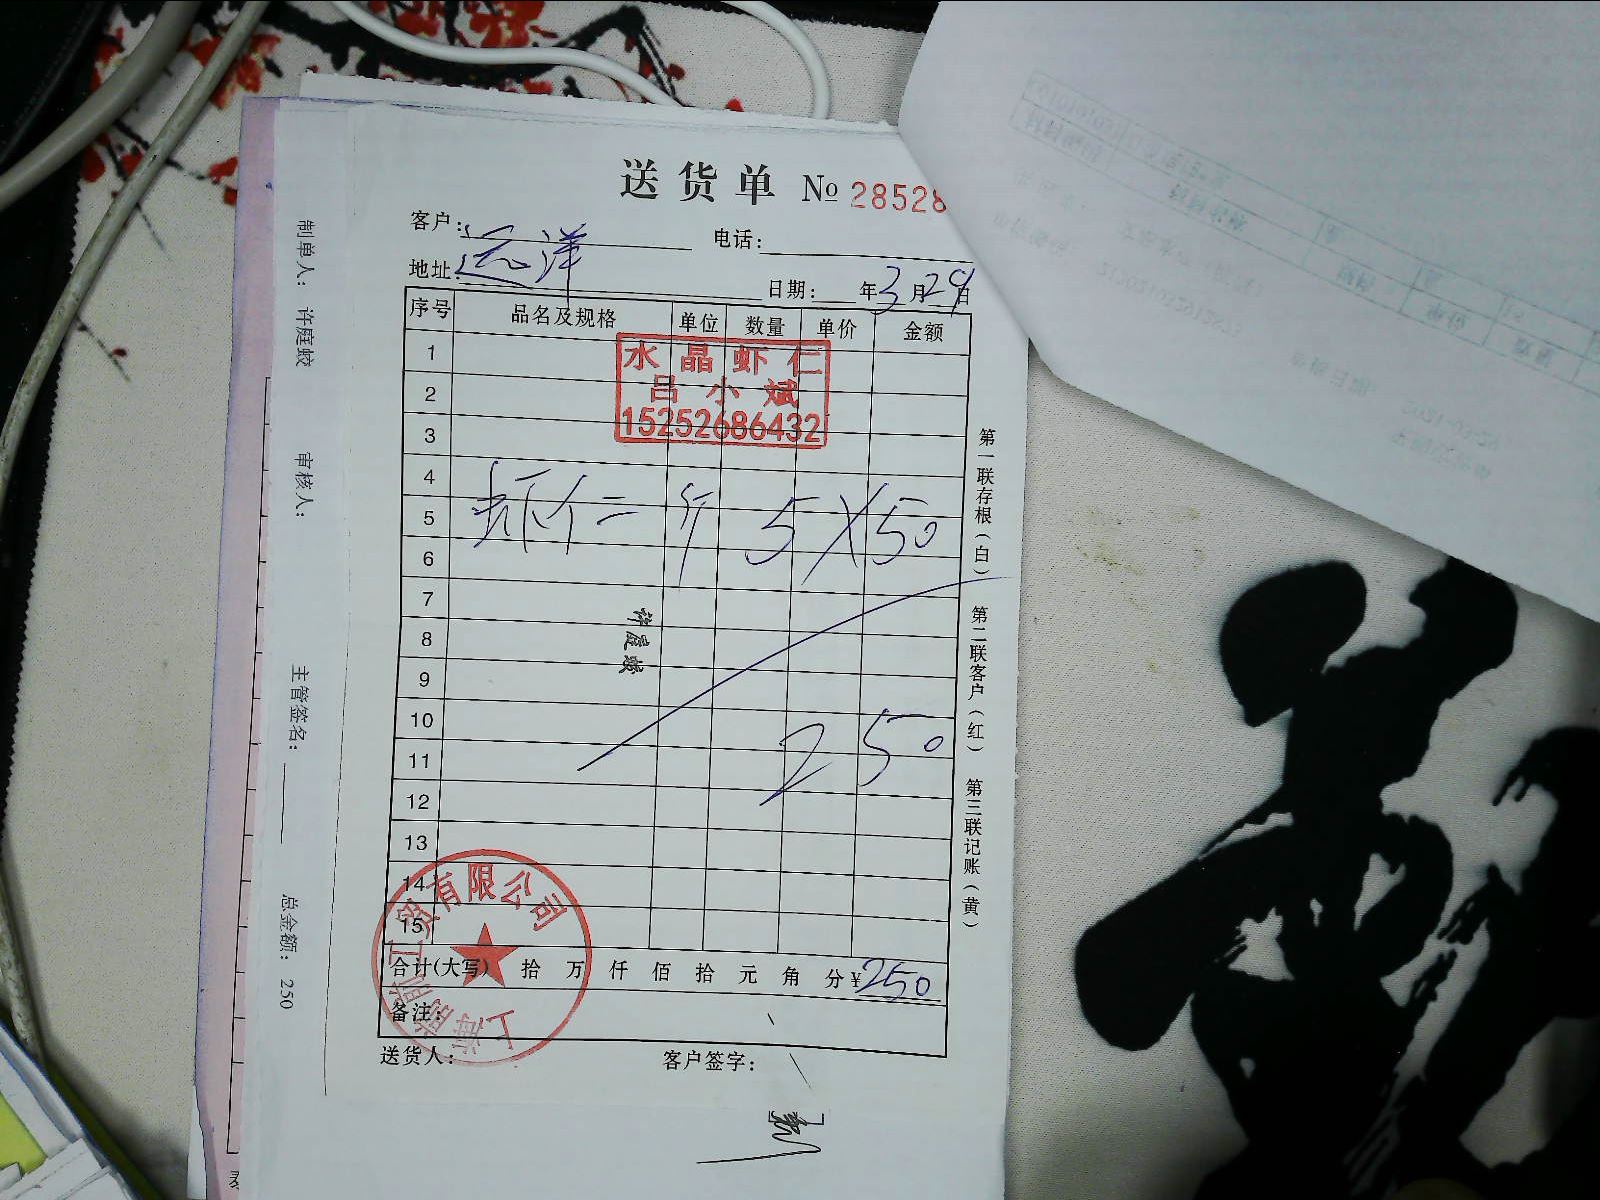 送货单 No 28528
客户: 远洋 电话:
地址: 日期: 年3月29日
序号 品名及规格 单位 数量 单价 金额
水晶虾仁
吕小斌
15252686432
1
2
3
4
5
6
7
8
9
10
11
12
13
14
15
虾仁二 斤 5×50
许庭蛟
250
合计(大写) 拾 万 仟 佰 拾 元 角 分 ¥250
备注:
送货人: 客户签字:
贸有限公司
上海
第一联存根(白) 第二联客户(红) 第三联记账(黄)
制单人: 许庭蛟 审核人: 主管签名: 总金额: 250